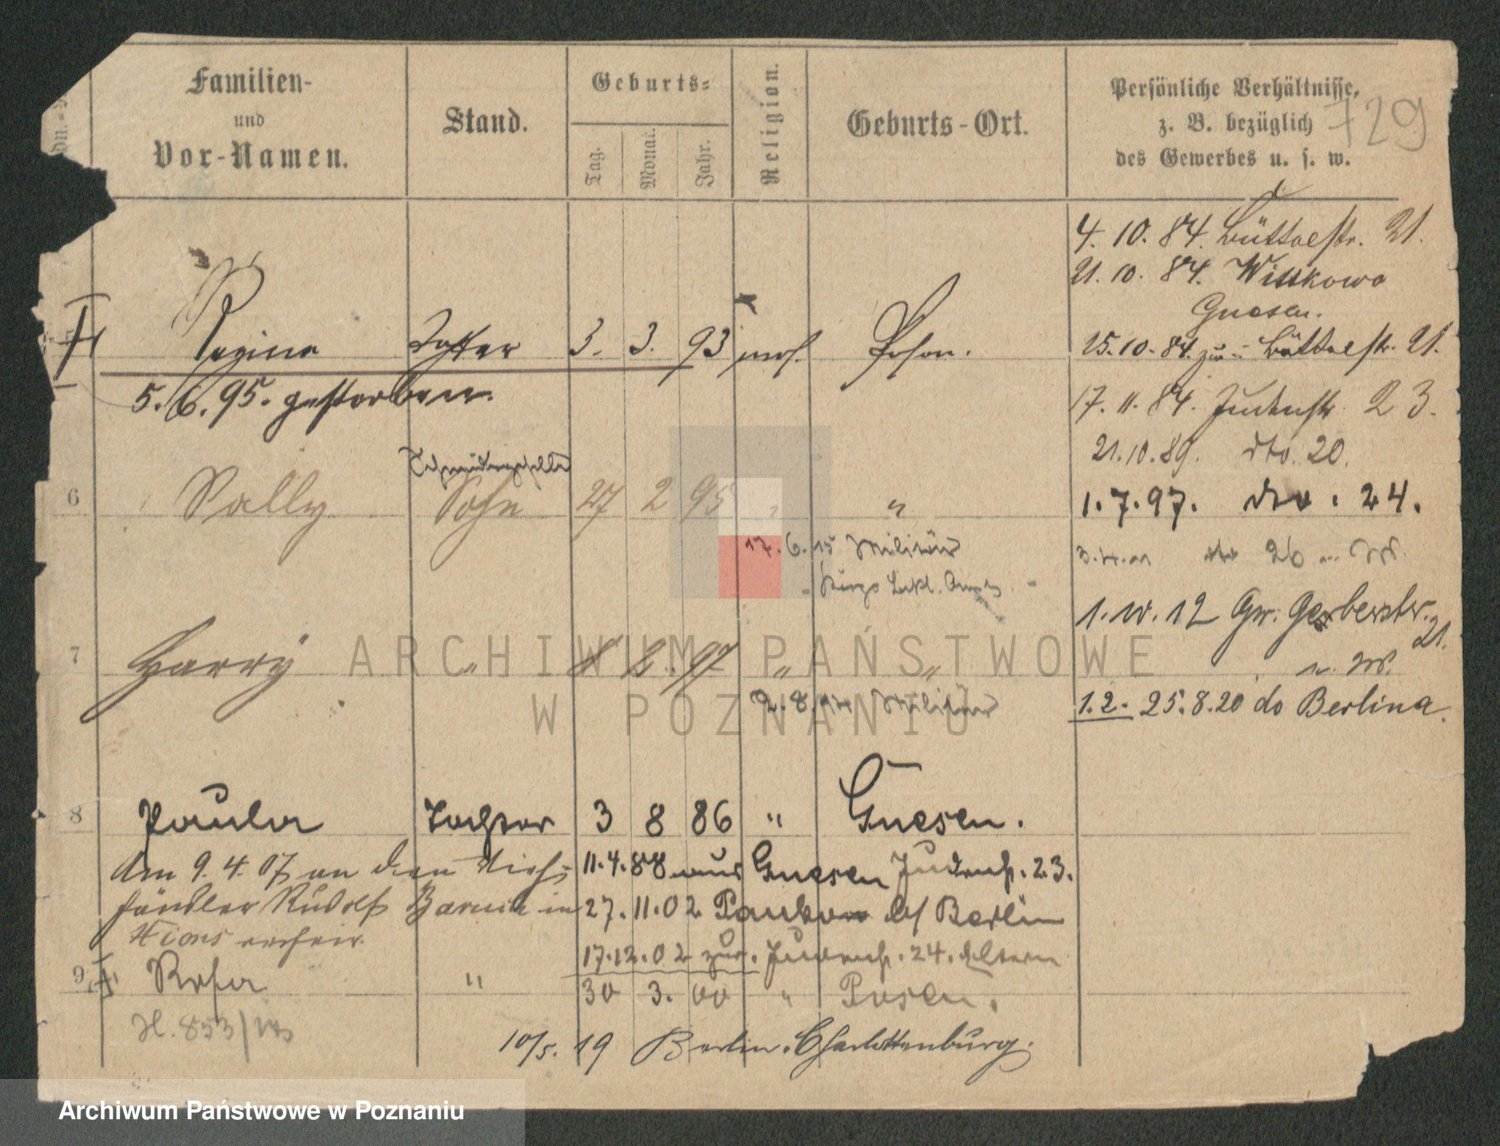 Familien-
und
Vor-Namen.
Stand.
Geburts-
Tag.
Monat.
Jahr.
Religion.
Geburts-Ort.
Persönliche Verhältnisse,
z. B. bezüglich
des Gewerbes u. s. w.
729
4. 10. 84. Büttelstr. 21.
21. 10. 84. Wittkowo
Gnesen.
25. 10. 84. zur. Büttelstr. 21.
Regina Tochter 3. 3. 93 mos. Posen.
5. 6. 95. gestorben.
17. 11. 84. Judenstr. 23.
21. 10. 89. dto. 20.
6 Sally Sohn 27 2 95 " "
1. 7. 97. dto. 24.
17. 6. 15 Militär
26
1. 10. 12 Gr. Gerberstr.
21.
7 Harry " 97 " "
2. 8. 14 Militär
1.2. 25. 8. 20 do Berlina.
8 Paula Tochter 3 8 86 " Gnesen.
den 9. 4. 07 an den Vieh-
11. 4. 88 aus Gnesen Judenstr. 23.
händler Rudolf in
27. 11. 02 Pankow b/ Berlin
verheir.
17. 12. 02 zur. Judenstr. 24. Eltern
9 Rosa " 30 3. 00 " Posen.
H. 853/
10/5. 19 Berlin-Charlottenburg.
ARCHIWUM PAŃSTWOWE
W POZNANIU
Archiwum Państwowe w Poznaniu